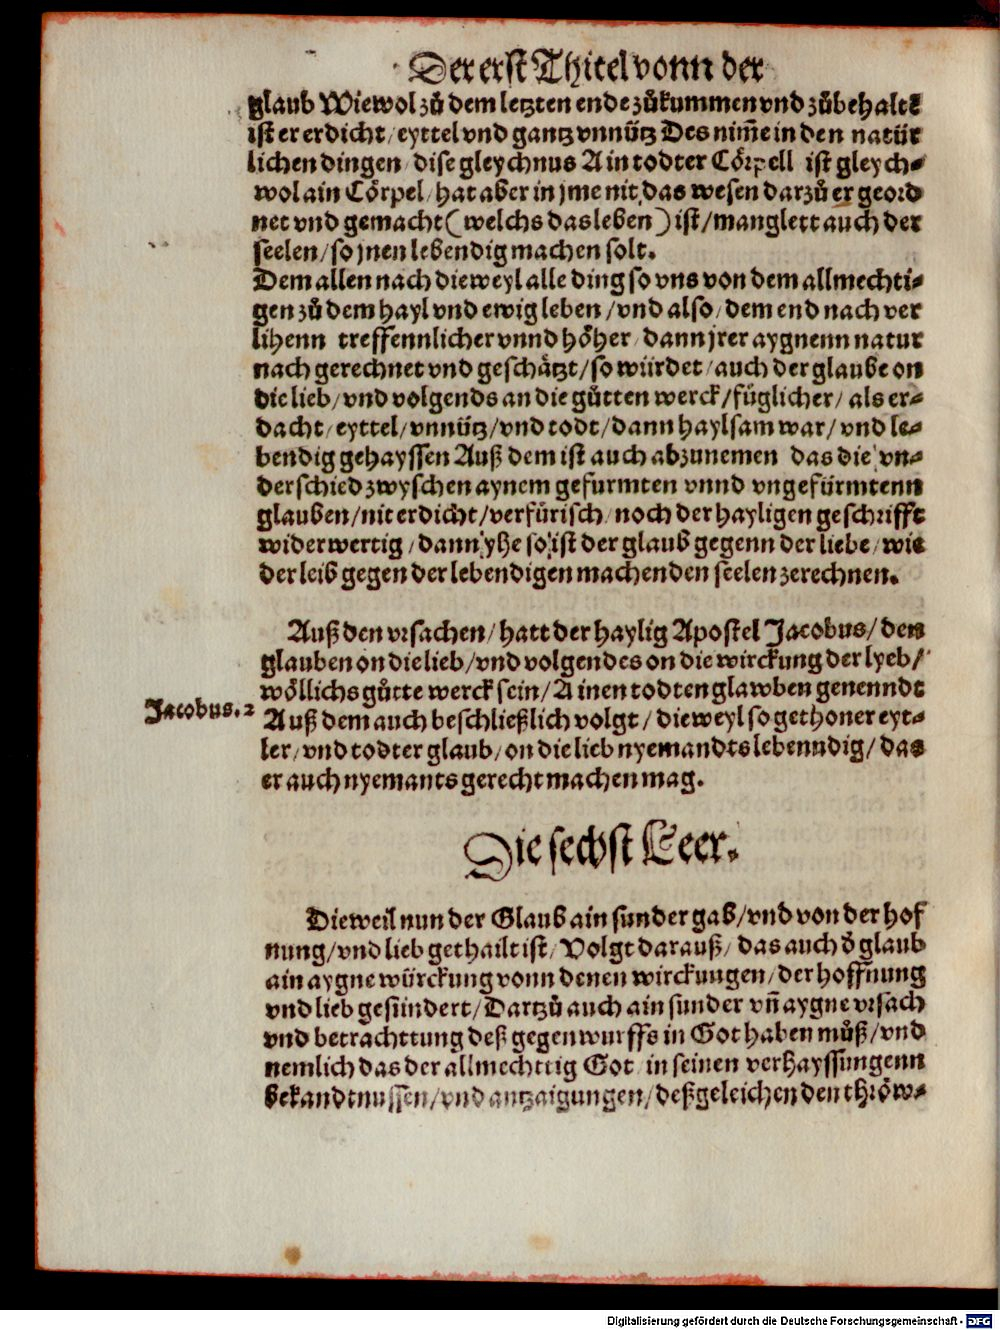 Der erst Thitel vonn der
glaub Wiewol zů dem letzten ende zůkummen vnd zůbehaltē
ist er erdicht / eyttel vnd gantz vnnütz Des nim̃ ein den natür
lichen dingen / dise gleychnus Ain todter Cörpell ist gleych⸗
wol ain Cörpel / hat aber in jme nit / das wesen darzů er geord
net vnd gemacht (welchs das leben) ist / manglett auch der
seelen / so jnen lebendig machen solt.
Dem allen nach dieweyl alle ding so vns von dem allmechti⸗
gen zů dem hayl vnd ewig leben / vnd also / dem end nach ver
lihenn treffennlicher vnnd höher / dann jrer aygnenn natur
nach gerechnet vnd geschätzt / so würdet / auch der glaube on
die lieb / vnd volgends an die gůtten werck / füglicher / als er⸗
dacht / eyttel / vnnütz / vnd todt / dann haylsam war / vnd le⸗
bendig gehayssen Auß dem ist auch abzunemen das die vn⸗
derschied zwyschen aynem gefurmten vnnd vngefürmtenn
glauben / nit erdicht / verfürisch / noch der hayligen geschrifft
widerwertig / dann yhe so ist der glaub gegenn der liebe / wie
der leib gegen der lebendigen machenden seelen zerechnen.
Auß den vrsachen / hatt der haylig Apostel Jacobus / den
glauben on die lieb / vnd volgendes on die wirckung der lyeb /
wöllichs gůtte werck sein / Ainen todten glawben genenndt
Jacobus. 2
Auß dem auch beschließlich volgt / dieweyl so gethoner eyt⸗
ler / vnd todter glaub / on die lieb nyemandts lebenndig / das
er auch nyemants gerecht machen mag.
Die sechst Leer.
Dieweil nun der Glaub ain sunder gab / vnd von der hof
nung / vnd lieb gethailt ist / Volgt darauß / das auch d̕ glaub
ain aygne würckung vonn denen wirckungen / der hoffnung
vnd lieb gesündert / Dartzů auch ain sunder vn̄ aygne vrsach
vnd betrachttung deß gegenwurffs in Got haben můß / vnd
nemlich das der allmechttig Got / in seinen verhayssungenn
bekandtnussen / vnd antzaigungen / deßgeleichen den thröw⸗
Digitalisierung gefördert durch die Deutsche Forschungsgemeinschaft - DFG